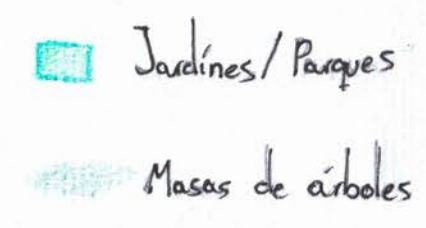 Jardínes/ Parques
Masas de árboles